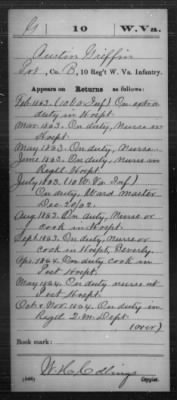 G | 10 | W. Va.
Austin Griffin
Pvt., Co. B, 10 Reg't W. Va. Infantry.
Appears on Returns as follows:
Feb. 1863. (10 Inf) On extra
duty in Hospt.
Mar. 1863. On duty, Nurse in
Hospt.
May 1863. On duty, Nurse.
June 1863. On duty, Nurse in
Regtl Hospt.
July 1863. (10 W. Va. Inf)
On duty, Ward Master
Dec. 20/62.
Aug. 1863. On duty, Nurse or
cook in Hospt.
Sept. 1863. On duty, Nurse or
cook in Hospt, Beverly.
Apr. 1864. On duty cook in
Post Hospt.
May 1864. On duty nurse at
Post Hospt.
Oct & Nov. 1864. On duty in
Regtl Q. M. Dept.
(over)
Book mark:
W. H. Collins
Copyist.